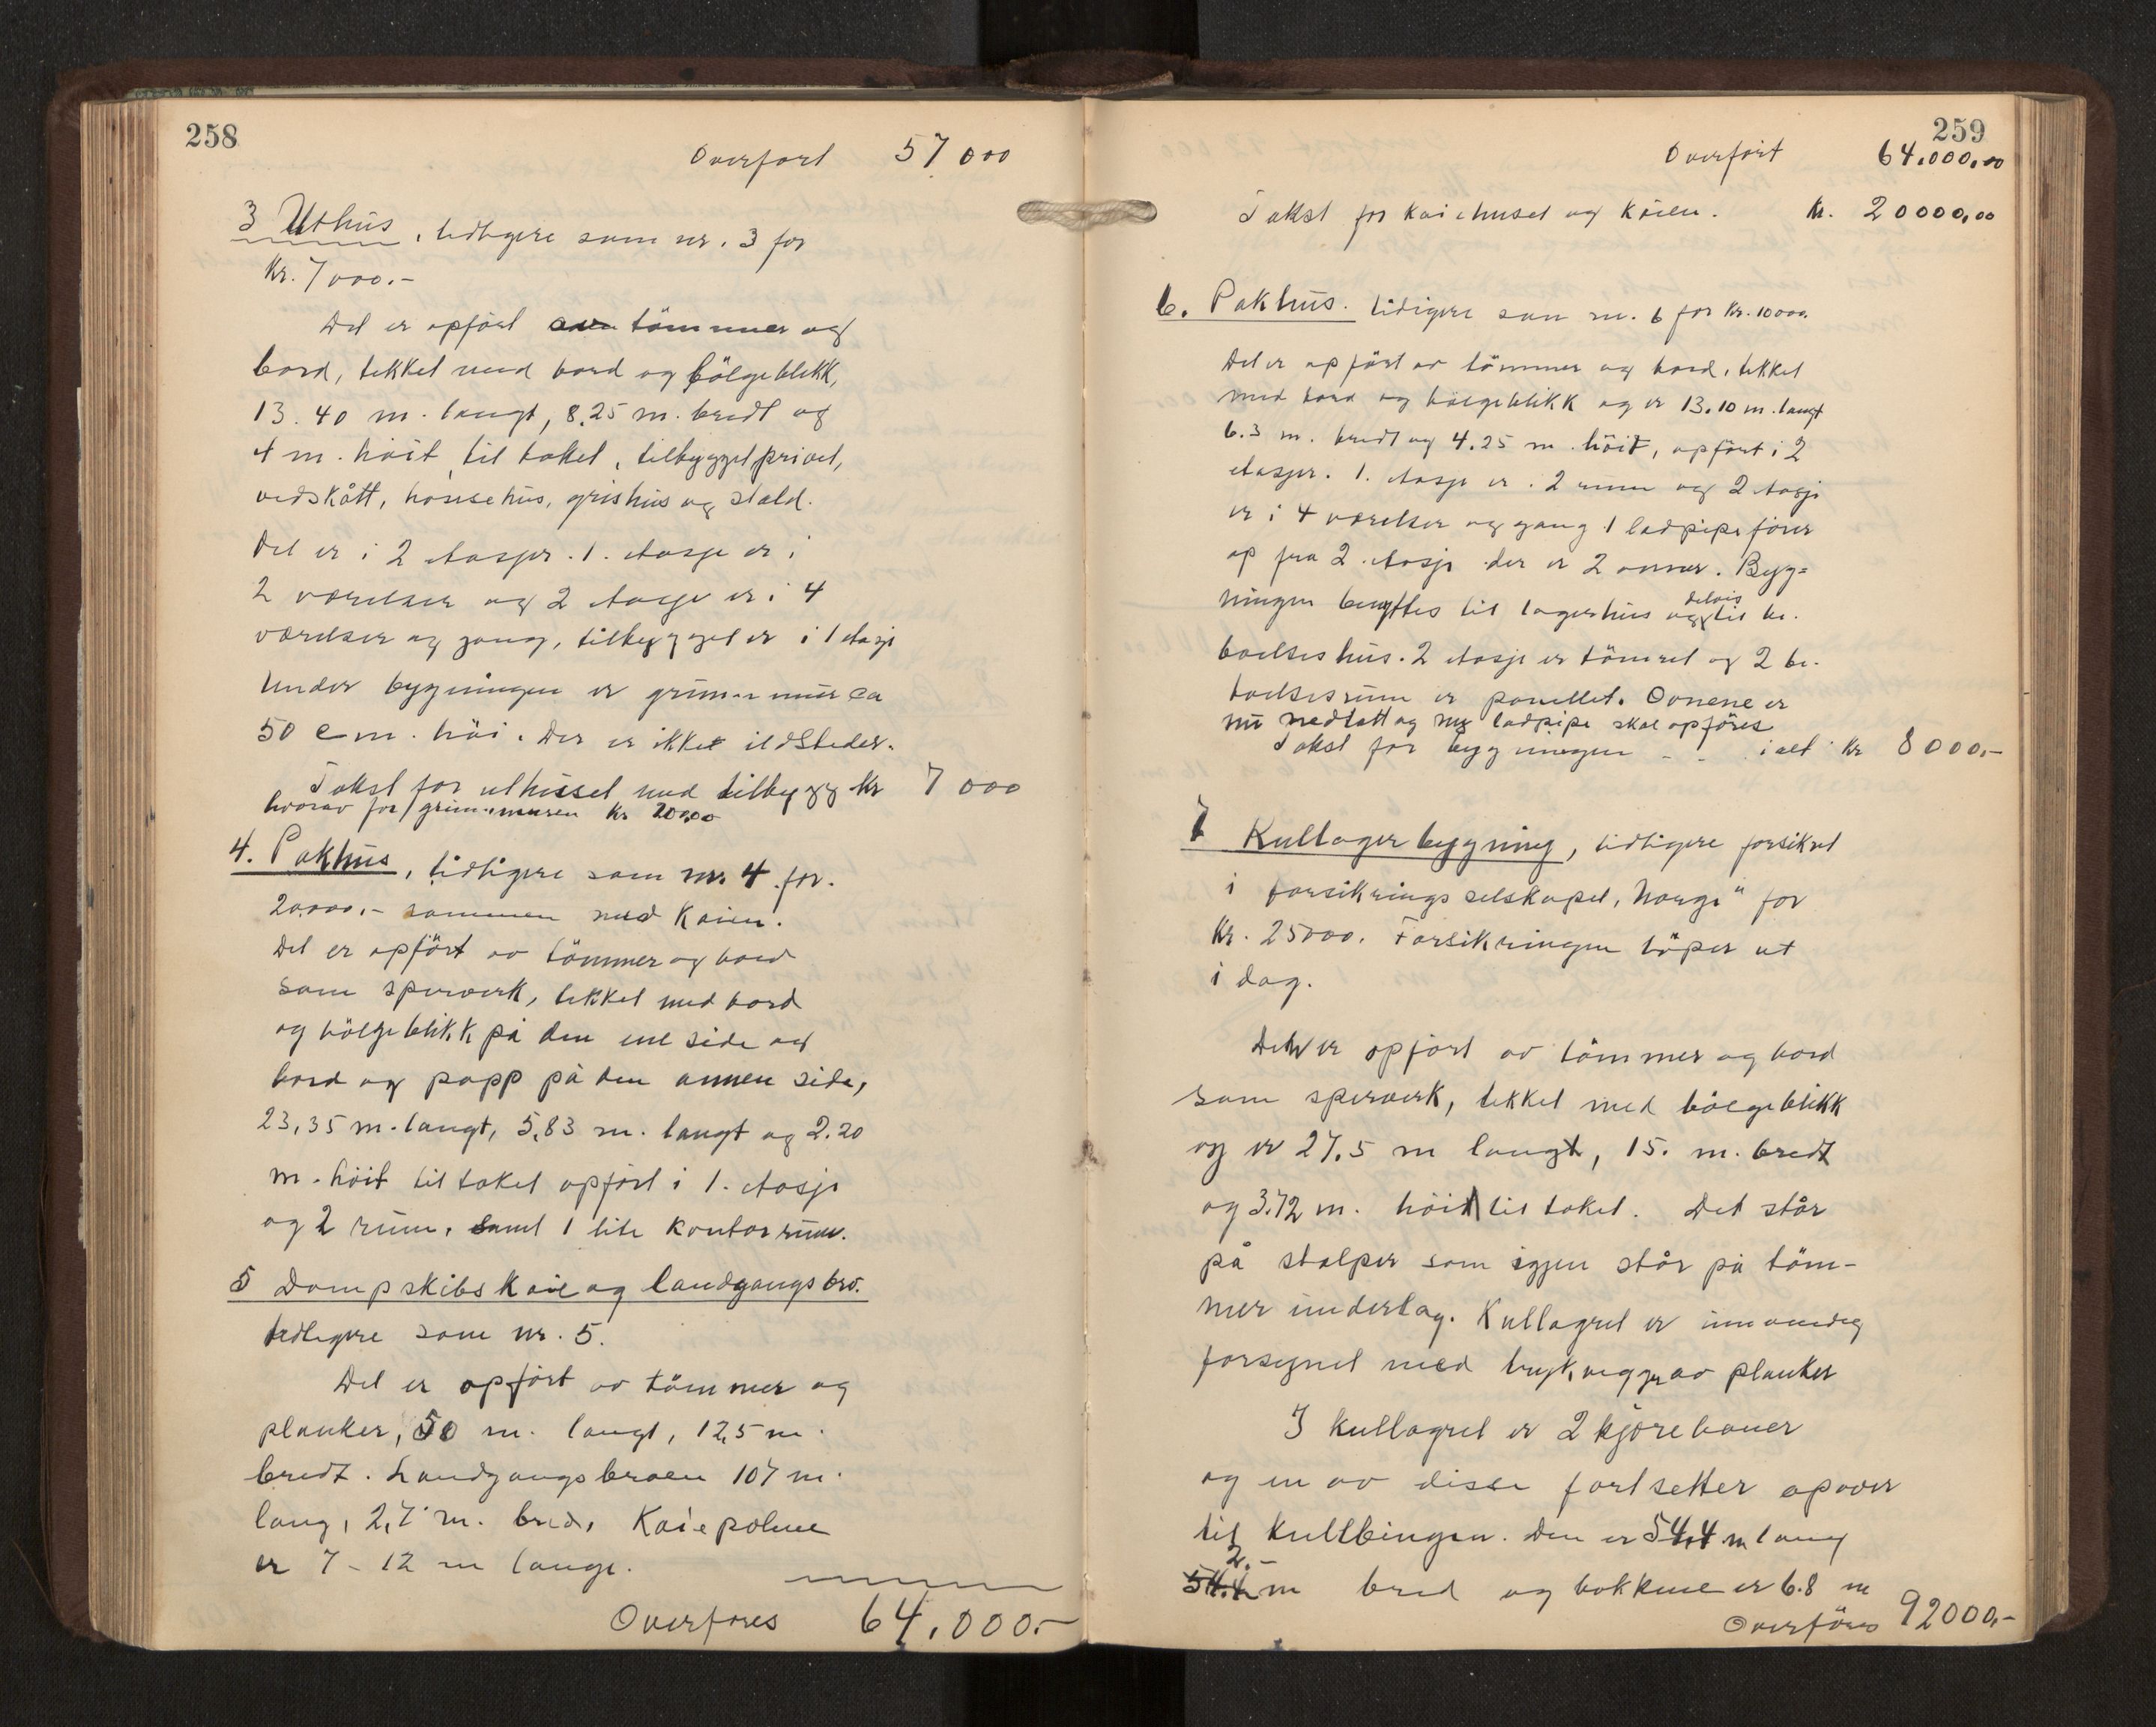 258
Overført 57000
3 Uthus, tidligere som nr. 3 for
Kr. 7000.-
Det er opført tömmer og
bord, tekket med bord og bölgeblikk,
13.40 m. langt, 8.25 m. bredt og
4 m. höit til taket, tilbygget privet,
vedskått, hönsehus, grishus og stald.
Det er i 2 etasjer. 1. etasje er i
2 værelser og 2 etasje er i 4
værelser og gang, tilbygget er i 1 etasje
Under bygningen er grunnmur ca
50 cm. höi. Der er ikke ildsteder.
Takst for uthuset med tilbygg kr 7000
hvorav for grunnmuren kr
4. Pakhus, tidligere som nr. 4 for.
20.000.- sammen med Kaien.
Det er opfört av tömmer og bord
som sperverk, tekket med bord
og bölgeblikk på den ene side og
bord og papp på den annen side,
23,35 m. langt, 5,83 m. langt og 2.20
m. höit til taket opfört i 1. etasje
og 2 rum, samt 1 lite kontorrum.
5 Dampskibskaie og landgangsbro.
tidligere som nr. 5.
Det er opfört av tömmer og
planker, 50 m. langt, 12,5 m.
bredt. Landgangsbroen 107 m.
lang, 2,7 m. bred, Kaiepælene
er 7-12 m lange.
Overføres 64.000.-
259
Overført 64.000,00
Takst for kaiehuset og kaien. Kr. 20000,00
6. Pakhus. tidigere som nr. 6 for Kr. 10000.
Det er opfört av tömmer og bord, tekket
med bord og bölgeblikk og er 13.10 m. langt
6.3 m. bredt og 4.25 m. höit, opfört i 2
etasjer. 1. etasje er i 2 rum og 2 etasje
er i 4 værelser og gang 1 ladpipe förer
op fra 2. etasje der er 2 ovner. Byg=
ningen benyttes til lagerhus og delvis til be-
boelseshus. 2 etasje er tömret og 2 be-
boelsesrum er panellet. Ovnene er
nu nedtatt og ny ladpipe skal opföres
Takst for bygningen - - ialt Kr 8000,-
7 Kullagerbygning, tidligere forsikret
i forsikringsselskapet, Norge" for
Kr. 25000. Forsikringen löper ut
i dag.
Det er opfört av tömmer og bord
som sperverk, tekket med bölgeblikk
og er 27.5 m langt, 15. m. bredt
og 3.72 m. höit til taket. Det står
på stolper som igjen står på töm-
mer underlag. Kullagret er innvendig
forsynet med trykvegger av planker
I kullagret er 2 kjörebaner
og en av disse fortsetter opover
til Kullbingen. Den er 54,4 m lang
2.-
54.4 m bred og bokkene er 6.8 m
Overföres 92000,-